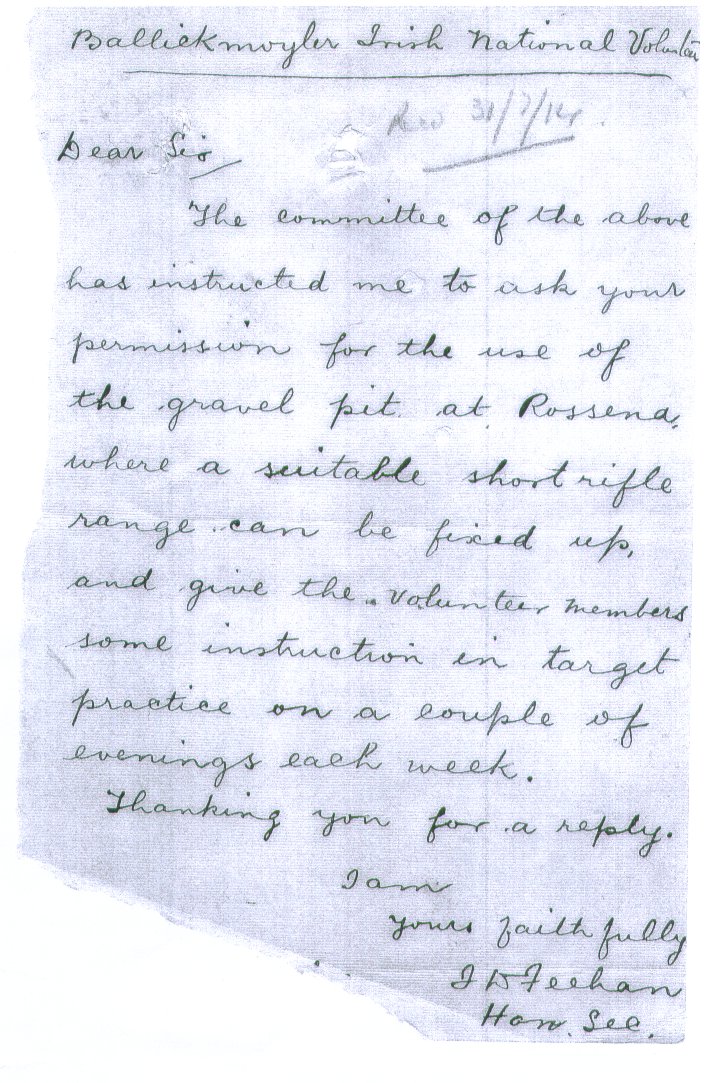 Ballickmoyler Irish National Volunteer
Recd 31/7/14.
Dear Sir,
The committee of the above
has instructed me to ask your
permission for the use of
the gravel pit at Rossena,
where a suitable short rifle
range can be fixed up,
and give the volunteer members
some instruction in target
practice on a couple of
evenings each week.
Thanking you for a reply.
I am
yours faithfully
J D Feehan
Hon. Sec.